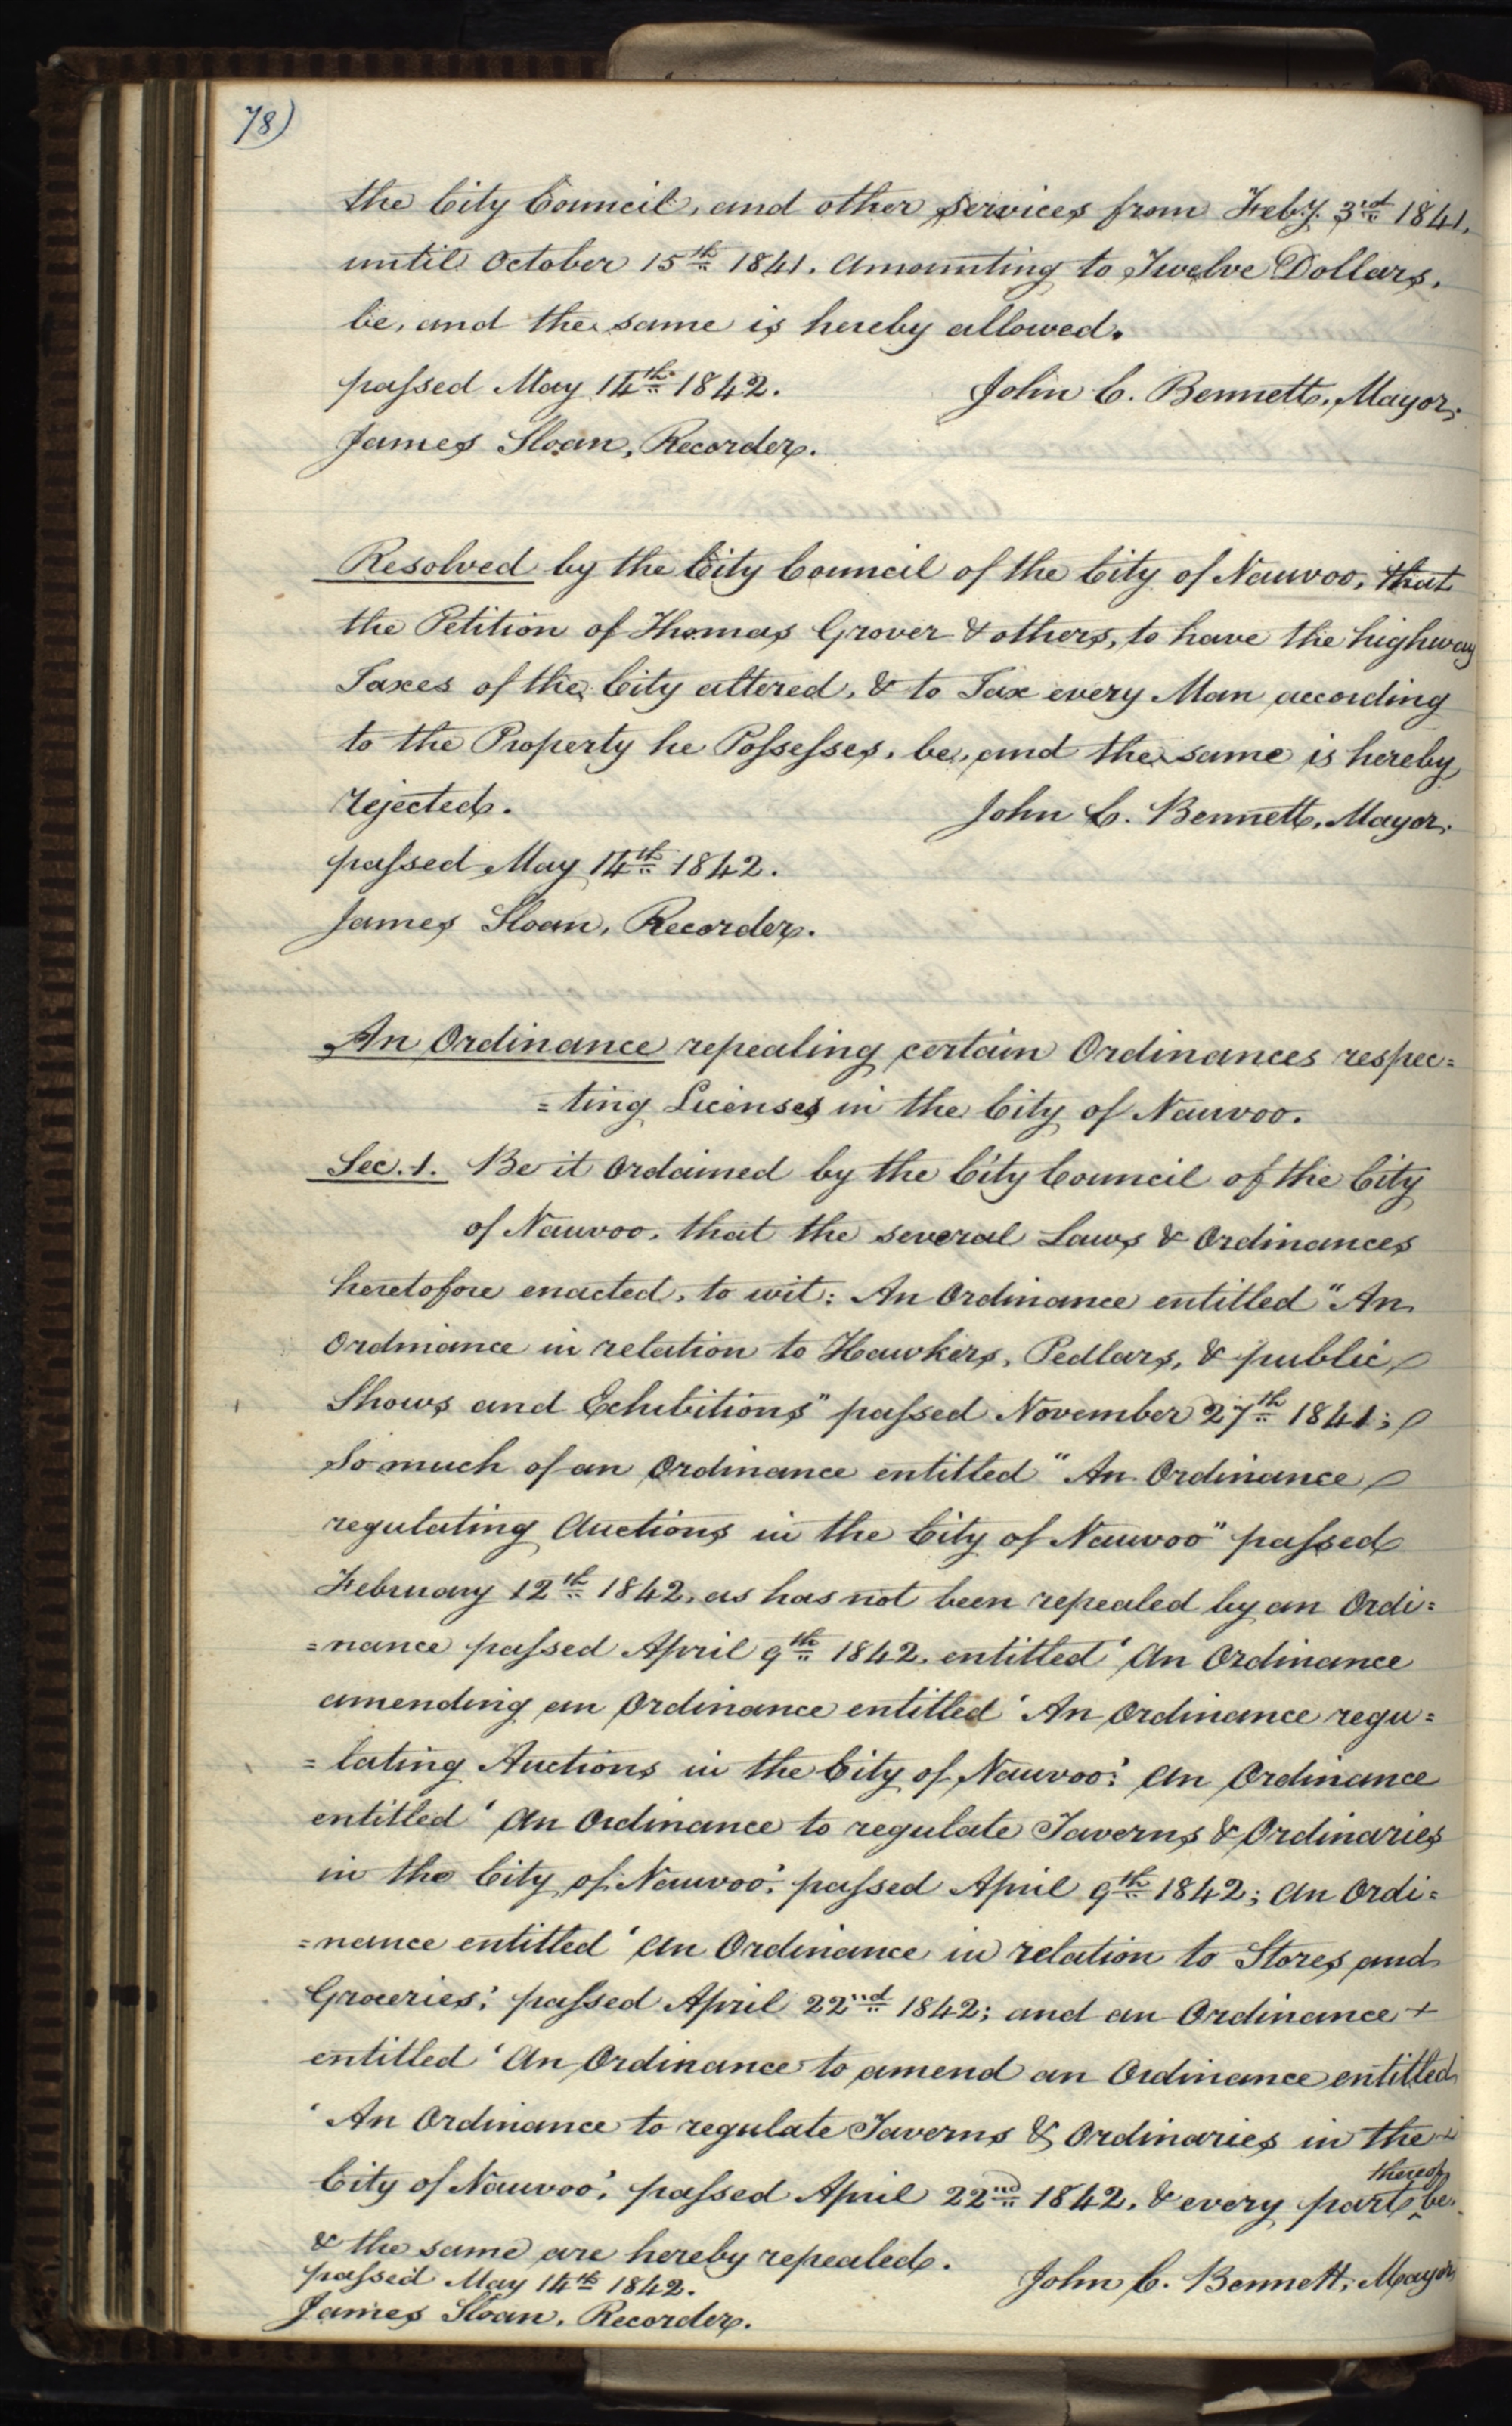 78)
the City Council, and other services from Feb.y. 3rd 1841,
until October 15th 1841. Amounting to Twelve Dollars,
be, and the same is hereby allowed.
passed May 14th 1842. John C. Bennett, Mayor.
James Sloan, Recorder.
Resolved by the City Council of the City of Nauvoo, that
the Petition of Thomas Grover & others, to have the highway
Taxes of the City altered, & to Tax every Man according
to the Property he Possesses, be, and the same is hereby
rejected. John C. Bennett, Mayor.
passed May 14th 1842.
James Sloan, Recorder.
An Ordinance repealing certain Ordinances respec=
=ting Licenses in the City of Nauvoo.
Sec. 1. Be it Ordained by the City Council of the City
of Nauvoo, that the several Laws & Ordinances
heretofore enacted, to wit: An Ordinance entitled "An
Ordinance in relation to Hawkers, Pedlars, & public
Shows and Exhibitions" passed November 27th 1841;
So much of an Ordinance entitled "An Ordinance
regulating Auctions in the City of Nauvoo" passed
February 12th 1842, as has not been repealed by an Ordi=
=nance passed April 9th 1842, entitled 'An Ordinance
amending an Ordinance entitled 'An Ordinance regu=
=lating Auctions in the City of Nauvoo'; An Ordinance
entitled 'An Ordinance to regulate Taverns & Ordinaries
in the City of Nauvoo', passed April 9th 1842; An Ordi=
=nance entitled 'An Ordinance in relation to Stores and
Groceries'; passed April 22nd 1842; and an Ordinance +
entitled 'An Ordinance to amend an Ordinance entitled
'An Ordinance to regulate Taverns & Ordinaries in the
City of Nauvoo', passed April 22nd 1842, & every part thereof be,
& the same are hereby repealed. John C. Bennett, Mayor
passed May 14th 1842.
James Sloan, Recorder.